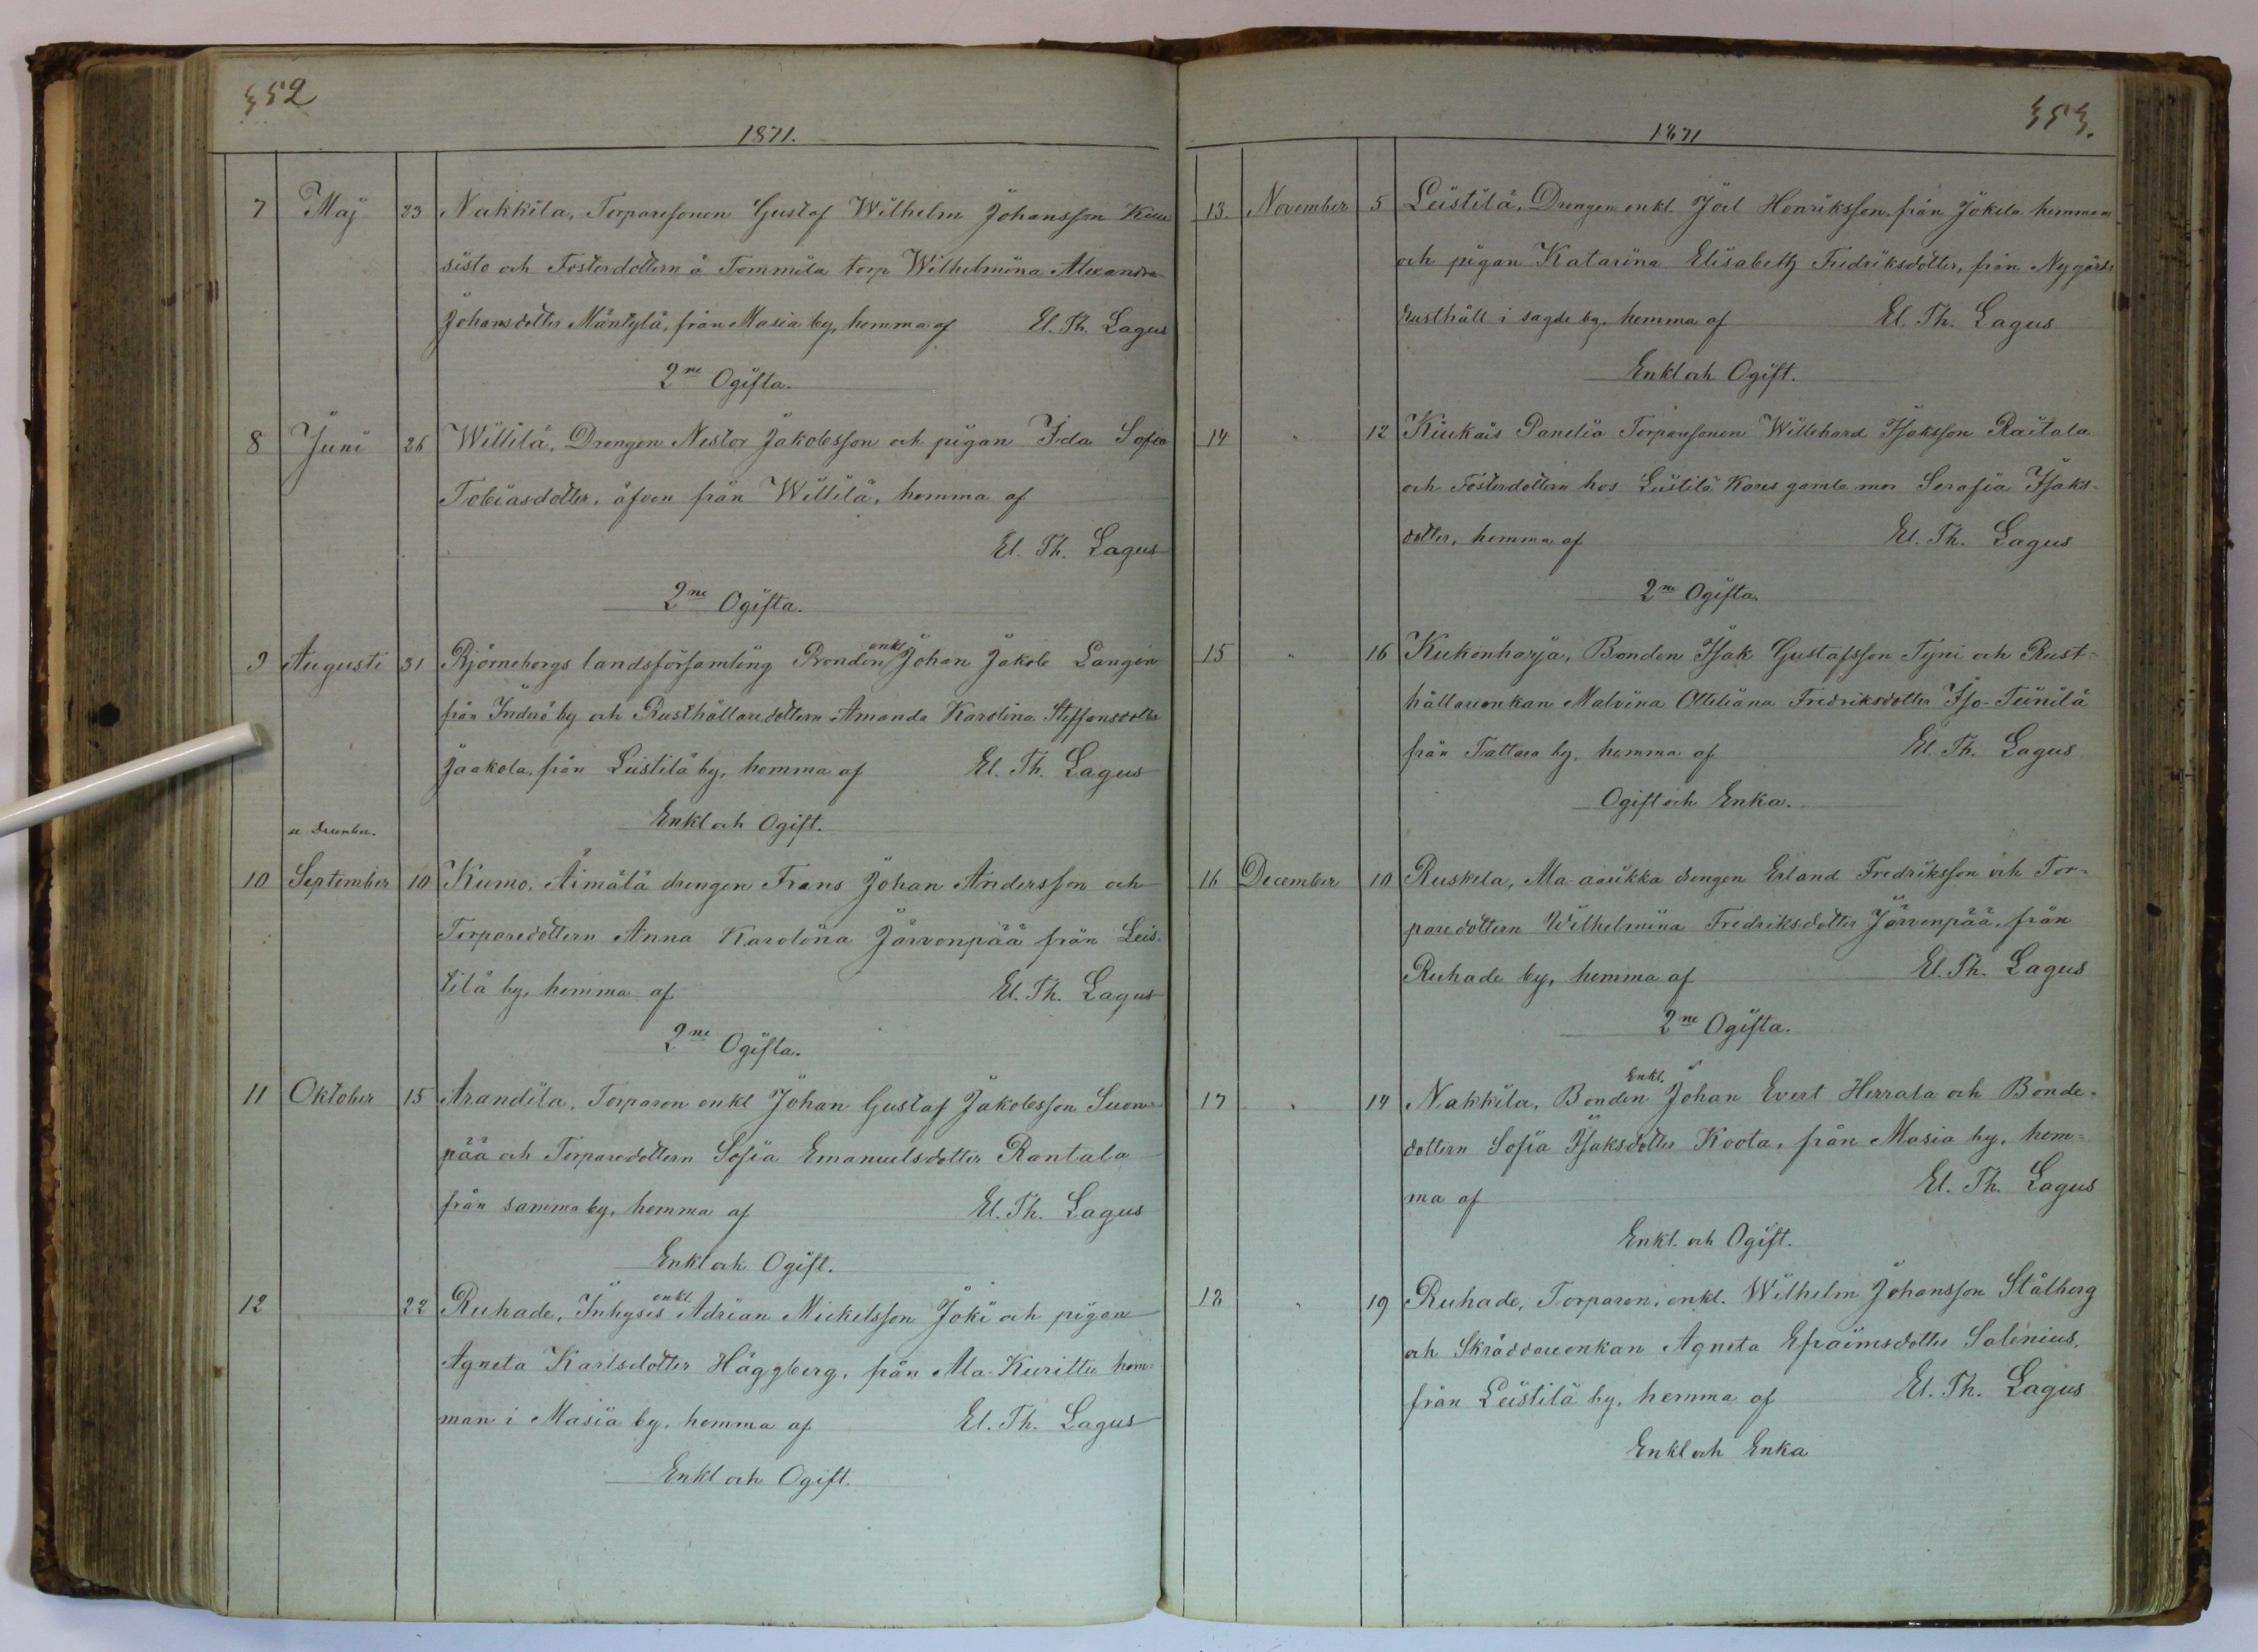 352
1871.
7 Maj 23 Nakkila, Torparesonen Gustaf Wilhelm Johansson
sisto och Fosterdottern å Tommila torp Wilhelmina Alexandra
Johansdotter Mäntylä, från Masia by, hemma af El. Th. Lagus
2ne Ogifta.
8 Juni 26 Willilä, Drengen Nestor Jakobsson och pigan Ida Sofia
Tobiasdotter, äfven från Willilä, hemma af
El. Th. Lagus
2ne Ogifta.
9 Augusti 31 Björneborgs landsförsamling Bonden enkl Johan Jakob Langén
från Inderö by och Rusthållaredottern Amanda Karolina Steffansdotter
Jaakola, från Leistilä by, hemma af El. Th. Lagus
Enkl och Ogift.
December.
10 September 10 Kumo, Äimälä drengen Frans Johan Andersson och
Torparedottern Anna Karolina Järvenpää från Leis-
tilä by, hemma af El. Th. Lagus
2ne Ogifta.
11 Oktober 15 Arandila, Torparen enkl Johan Gustaf Jakobsson Suon-
pää och Torparedottern Sofia Emanuelsdotter Rantala
från samma by, hemma af El. Th. Lagus
Enkl och Ogift.
12 22 Ruhade, Inhyses enkl. Adrian Mickelsson Joki och pigan
Agneta Karlsdotter Häggberg, från Ala-Kurittu hem-
man i Masia by, hemma af El. Th. Lagus
Enkl och Ogift.
353.
1871
13. November 5 Leistilä, Drengen enkl. Joel Henriksson, från Jokela hemman
och pigan Katarina Elisabeth Fredriksdotter, från Nygårds
Rusthåll i sagde by, hemma af El. Th. Lagus
Enkl och Ogift.
14 " 12 Kiukais Panelia Torparesonen Willehard Isaksson Raitala
och Fosterdottern hos Leistilä Kares gamla mor Serafia Isaks-
dotter, hemma af El. Th. Lagus
2ne Ogifta.
15 " 16 Kukonharja, Bonden Isak Gustafsson Tyni och Rust-
hållareenkan Malvina Ottiliana Fredriksdotter Iso-Teinilä
från Tattara by, hemma af El. Th. Lagus
Ogift och Enka.
16 December 10 Ruskela, drengen Erland Fredriksson och Tor-
paredottern Wilhelmina Fredriksdotter Järvenpää, från
Ruhade by, hemma af El. Th. Lagus
2ne Ogifta.
17 " 14 Nakkila, Bonden Enkl. Johan Evert Herrala och Bonde-
dottern Sofia Isaksdotter Koota, från Masia by, hem-
ma af El. Th. Lagus
Enkl. och Ogift.
18 " 19 Ruhade, Torparen, enkl. Wilhelm Johansson Stålberg
och Skräddareenkan Agneta Efraimsdotter Salenius,
från Leistilä by, hemma af El. Th. Lagus
Enkl och Enka